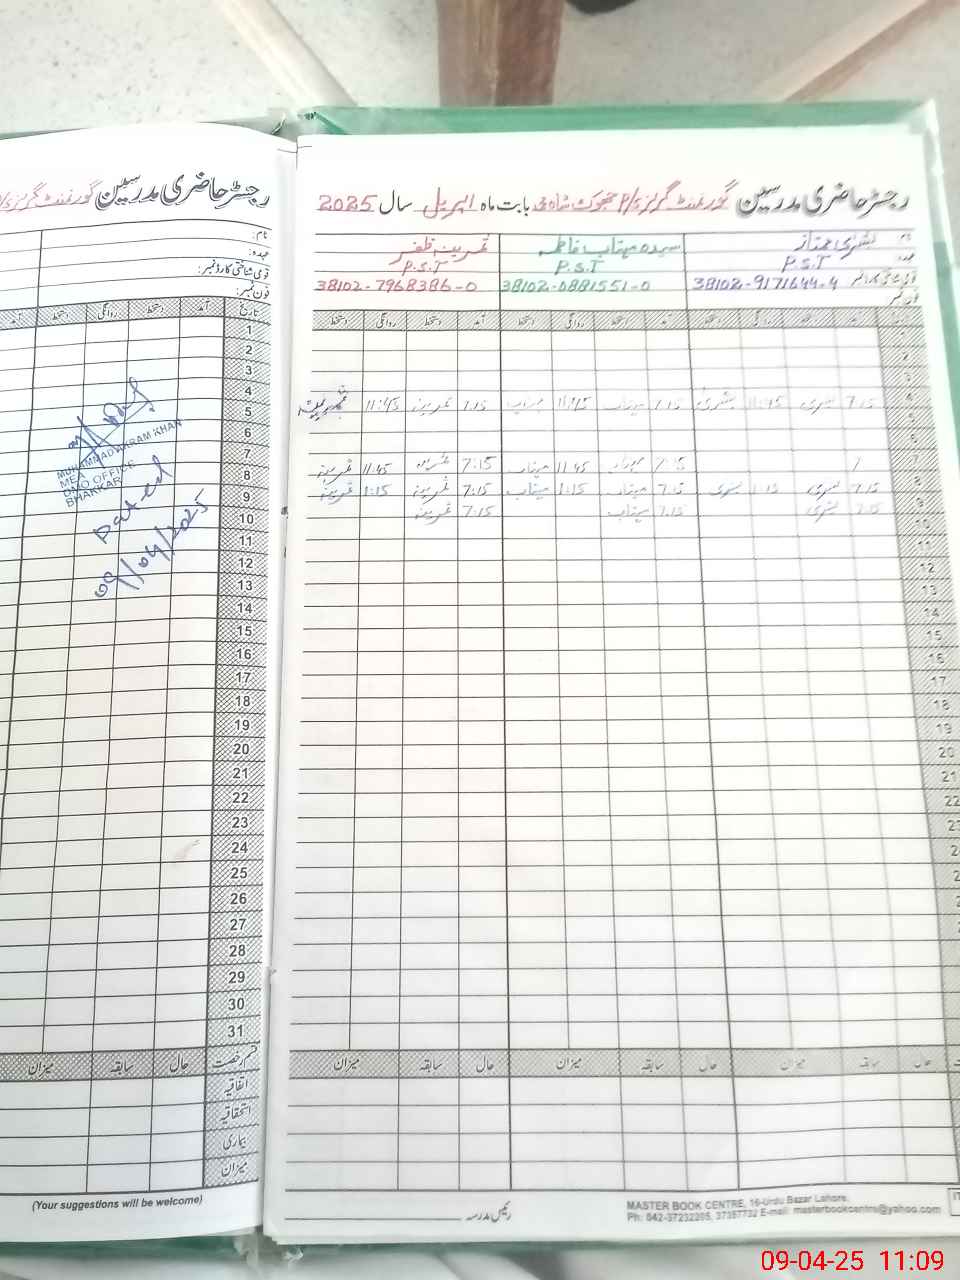 رجسٹر حاضری مدرسین گورنمنٹ گرلز
نام:
عہدہ:
قومی شناختی کارڈ نمبر:
فون نمبر:
تاریخ آمد دستخط روانگی دستخط آمد
1
2
3
4
5
6
7
8
9
10
11
12
13
14
15
16
17
18
19
20
21
22
23
24
25
26
27
28
29
30
31
MUHAMMAD AKRAM KHAN
MEA
DMO OFFICE
BHAKKAR
Dated
09/04/2025
قسم رخصت حال سابقہ میزان
اتفاقیہ
استحقاقیہ
بیماری
میزان
(Your suggestions will be welcome)
رجسٹر حاضری مدرسین گورنمنٹ گرلز P/S جھوک شاہ بابت ماہ اپریل سال 2025
نام بشریٰ ممتاز سیدہ مہتاب فاطمہ ثمرین ظفر
عہدہ P.S.T P.S.T P.S.T
قومی شناختی کارڈ نمبر 38102-9171644-4 38102-0881551-0 38102-7968386-0
فون نمبر
آمد دستخط روانگی دستخط آمد دستخط روانگی دستخط آمد دستخط روانگی دستخط
1
2
3
4 7.15 بشریٰ 11:45 بشریٰ 7.15 مہتاب 11:45 مہتاب 7.15 ثمرین 11:45
5
6
7 7:15 مہتاب 11:45 مہتاب 7:15 ثمرین 11:45 ثمرین
8 7.15 بشریٰ 1:15 بشریٰ 7.15 مہتاب 1:15 مہتاب 7:15 ثمرین 1:15 ثمرین
9 7.15 بشریٰ 7.15 مہتاب 7.15 ثمرین
10
11
12
13
14
15
16
17
18
19
20
21
22
حال سابقہ میزان حال سابقہ میزان حال سابقہ میزان
رئیس مدرسہ
MASTER BOOK CENTRE, 16-Urdu Bazar Lahore.
Ph: 042-37232205, 37357732 E-mail: masterbookcentre@yahoo.com
09-04-25 11:09